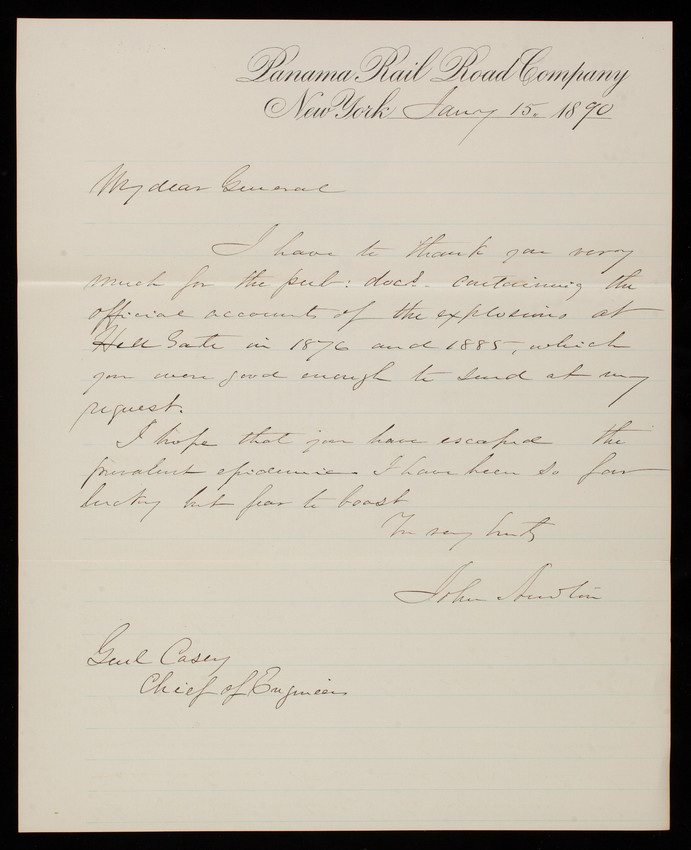 Panama Rail Road Company
New York Jany 15. 1890
My dear General
I have to thank you very
much for the pub: docs. containing the
official accounts of the explosions at
Hell Gate in 1876 and 1885, which
you were good enough to send at my
request.
I hope that you have escaped the
prevalent epidemic I have been so far
lucky but fear to boast
Yrs very truly
John Newton
Genl Casey
Chief of Engineers